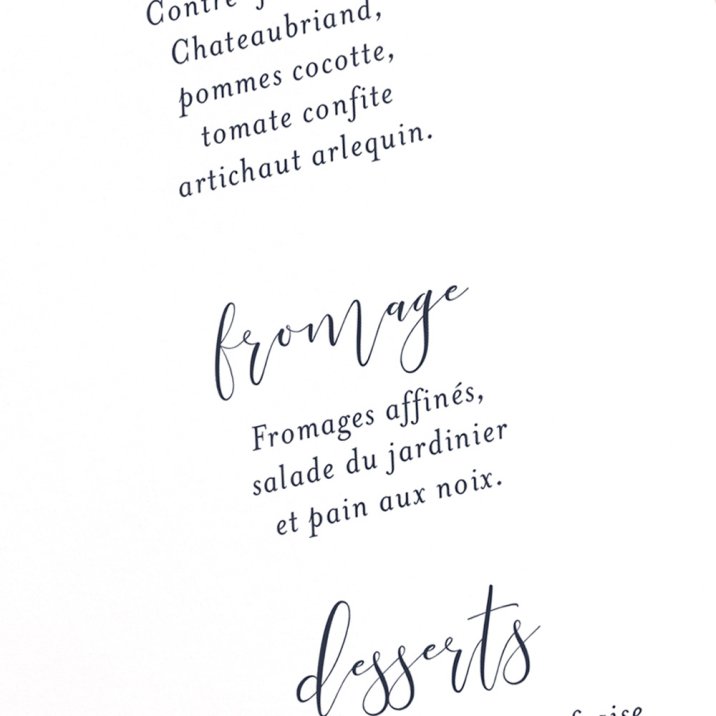 Contre
Chateaubriand,
pommes cocotte,
tomate confite
artichaut arlequin.
fromage
Fromages affinés,
salade du jardinier
et pain aux noix.
desserts